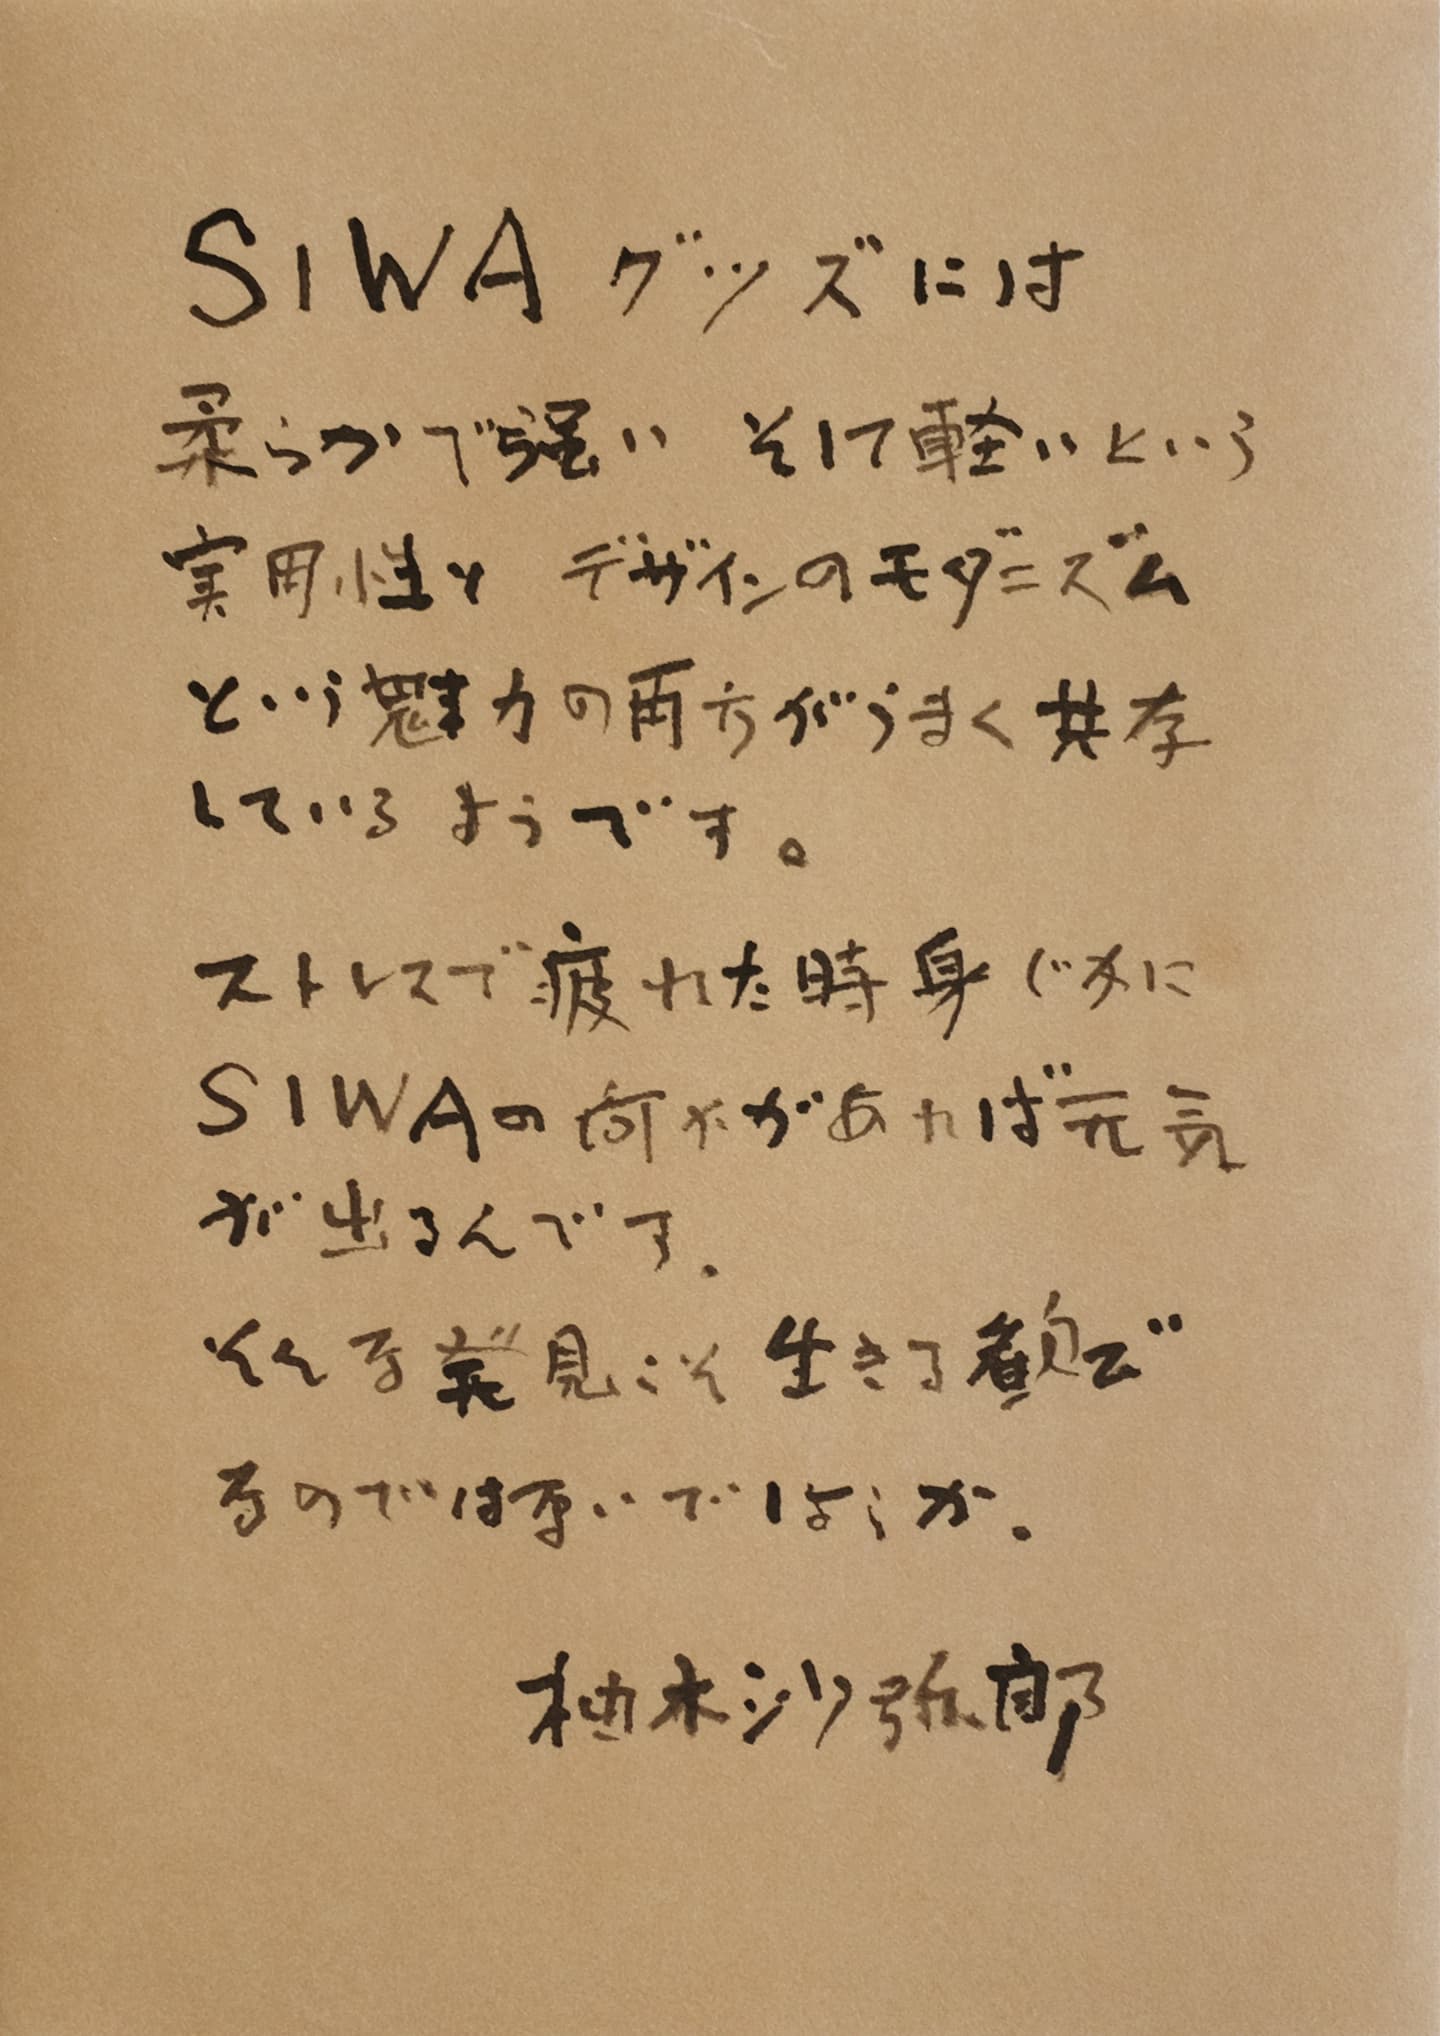 SIWA グッズには
柔らかで強い そして軽いという
実用性と デザインのモダニズム
という魅力の両方がうまく共存
している ようです。
ストレスで疲れた時 身ぢかに
SIWAの何かがあれば元気
が出るんです.
そんな発見こそ 生きる歓び
なのでは ないでしょうか.
柚木沙弥郎